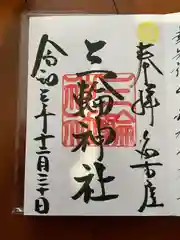 奉拝
名古屋
三輪神社
令和三年十二月三十日